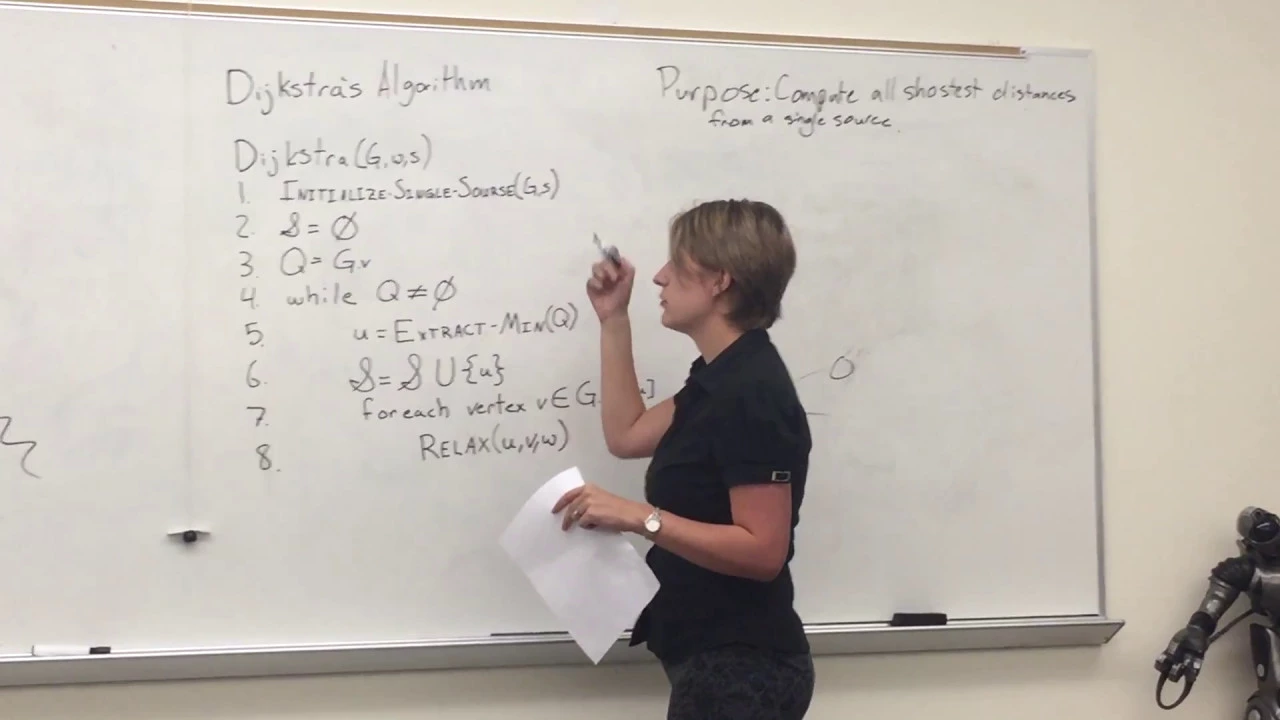 Dijkstra's Algorithm
Purpose: Compute all shostest distances
from a single source.
Dijkstra(G,w,s)
1. INITIALIZE-SINGLE-SOURSE(G,s)
2. S = Ø
3. Q = G.v
4. while Q ≠ Ø
5. u = EXTRACT-MIN(Q)
6. S = S U {u}
7. for each vertex v ∈ G. ]
8. RELAX(u,v,w)